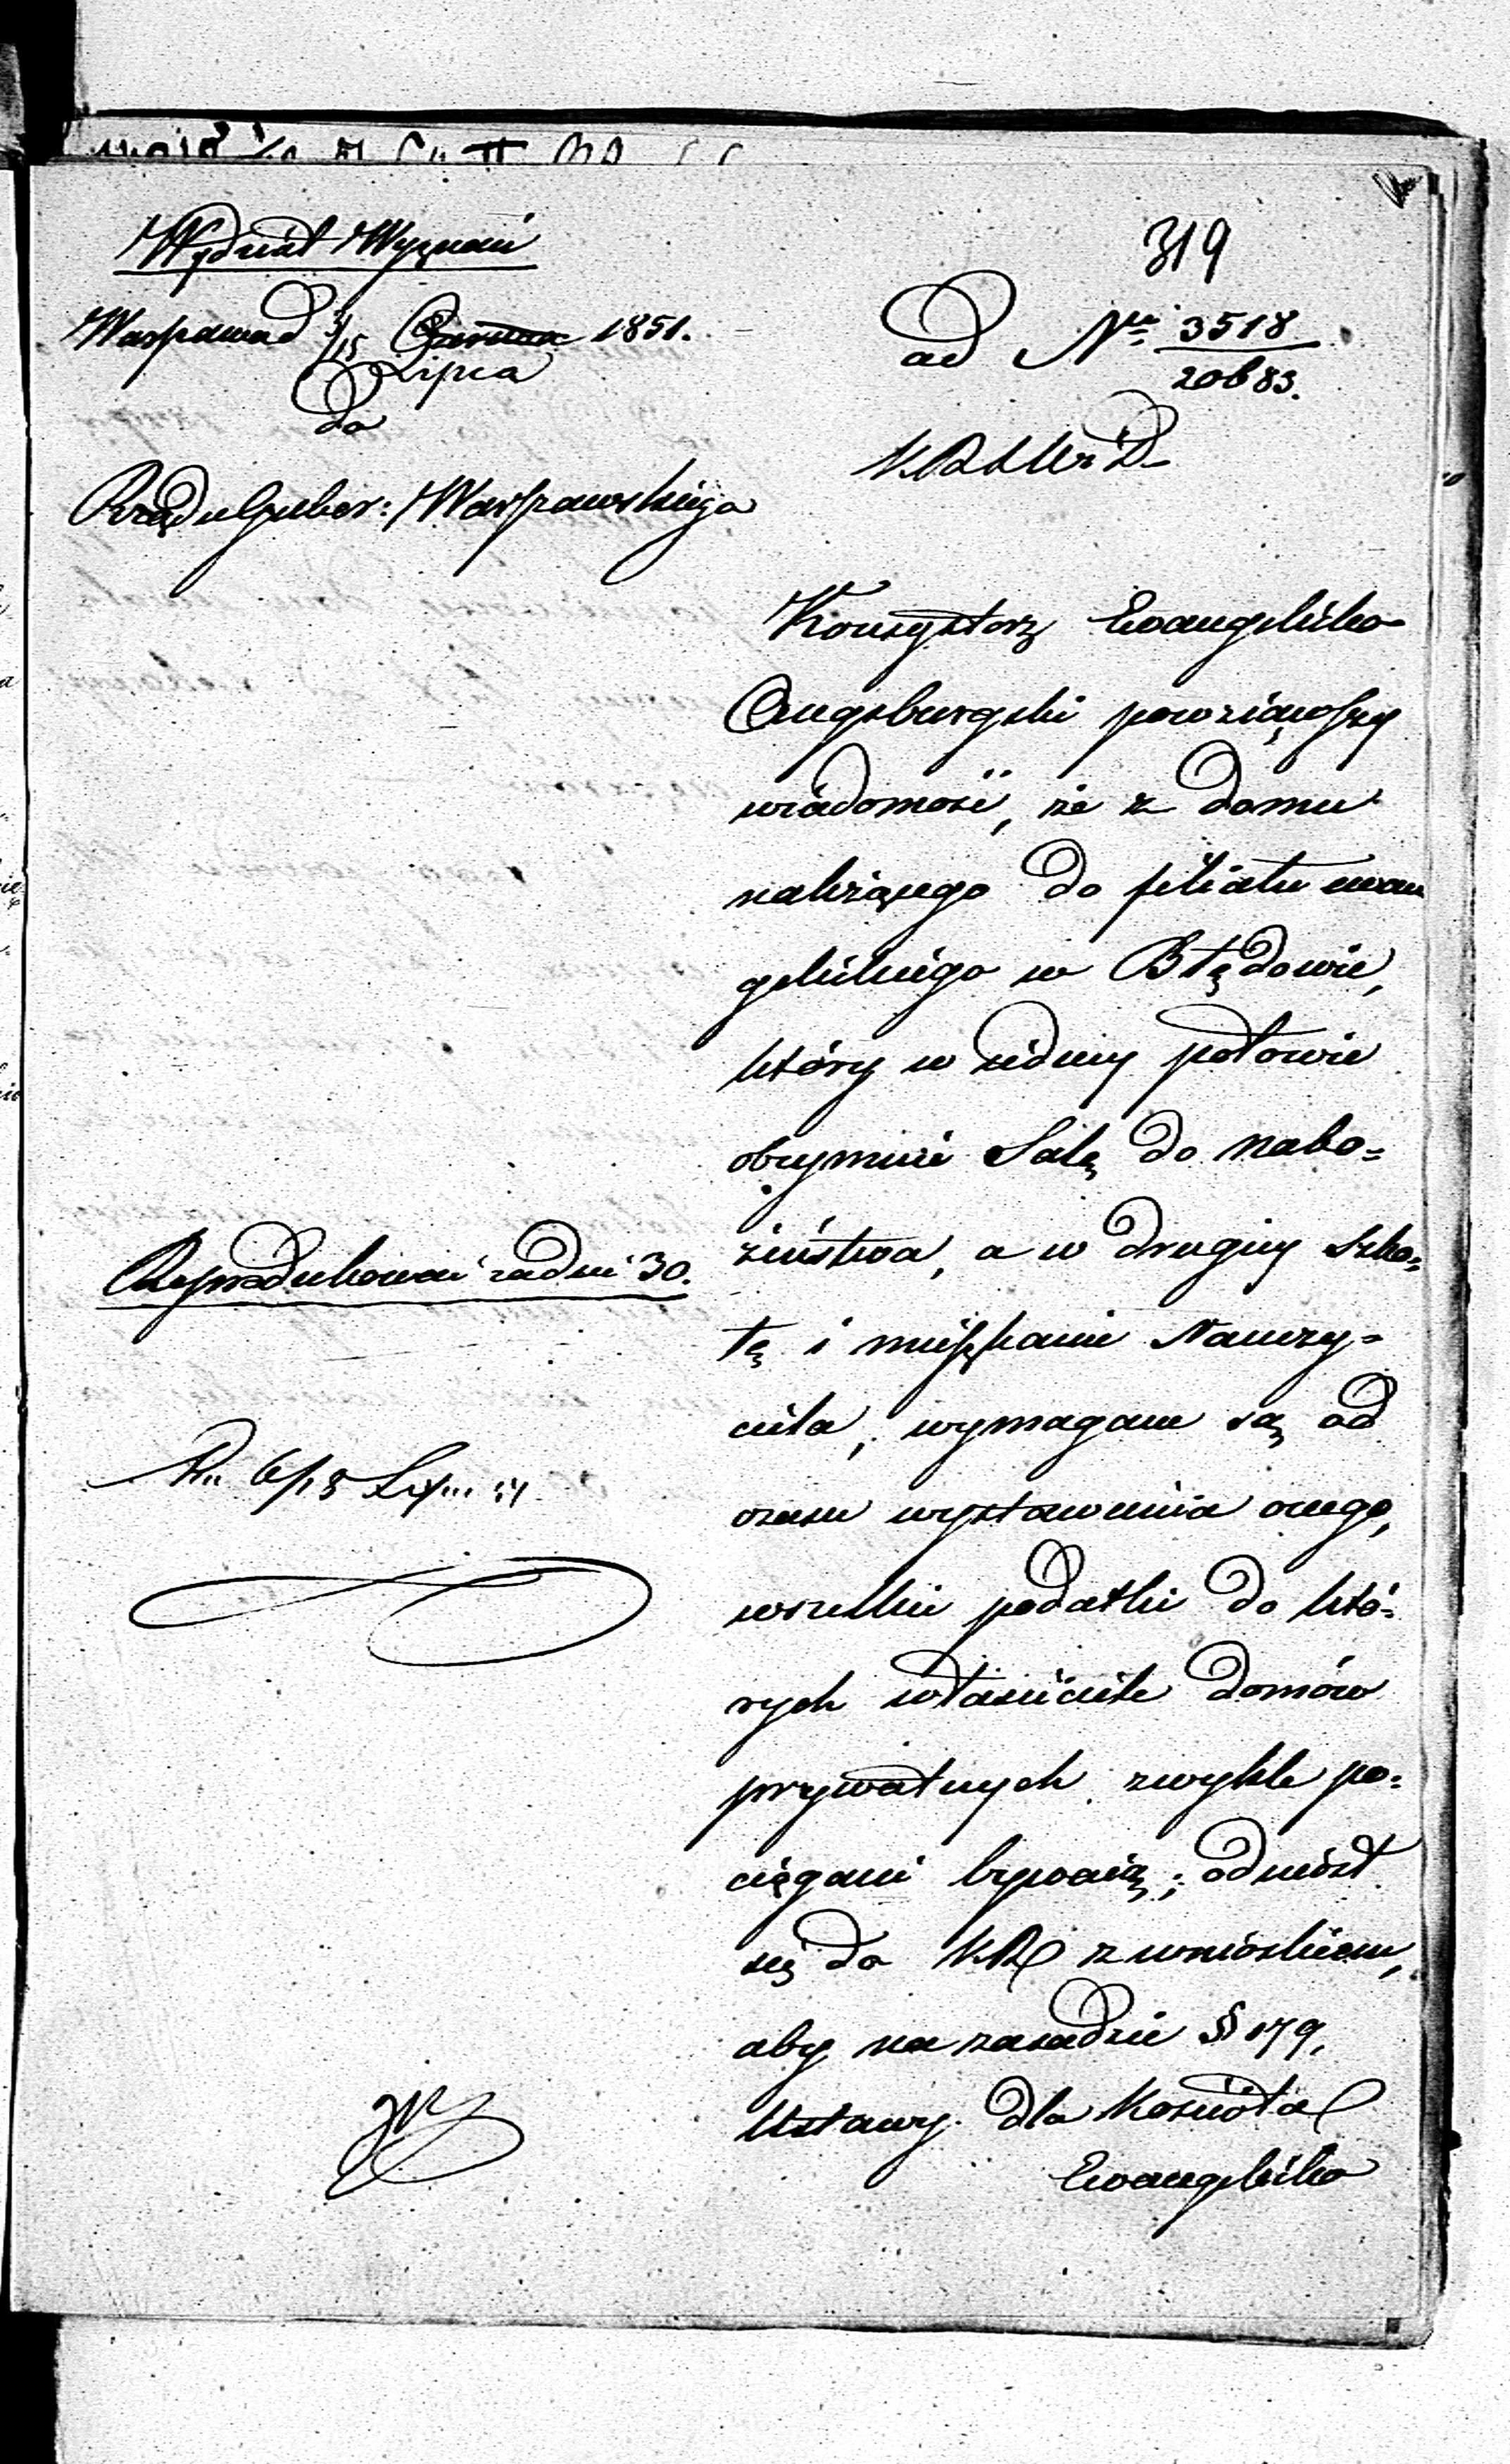 319
Wydział Wyznań
Warszawa d 3/15 Czerwca 1851.
Lipca
do
Rządu Guber: Warszawskiego
ad Nru 3518/20683.
KRSWiD
Konsystorz Ewangelicko
Augsburgski powziąwszy
wiadomość, że z domu
należącego do filiału ewan
gelickiego w Błędowie,
który w jednej połowie
obejmuie Salę do nabo=
żeństwa, a w drugiej szko=
łę i mieszkanie Nauczy=
ciela, wymagane są od
czasu wystawienia onego,
wszelkie podatki do któ=
rych właściciele domów
prywatnych zwykle po=
ciągani bywaią; odniósł
się do KR z wnioskiem,
aby na zasadzie § 179,
Ustawy dla Kościoła
Ewangelicko
Reprodukować za dni 30.
6/18 Lip